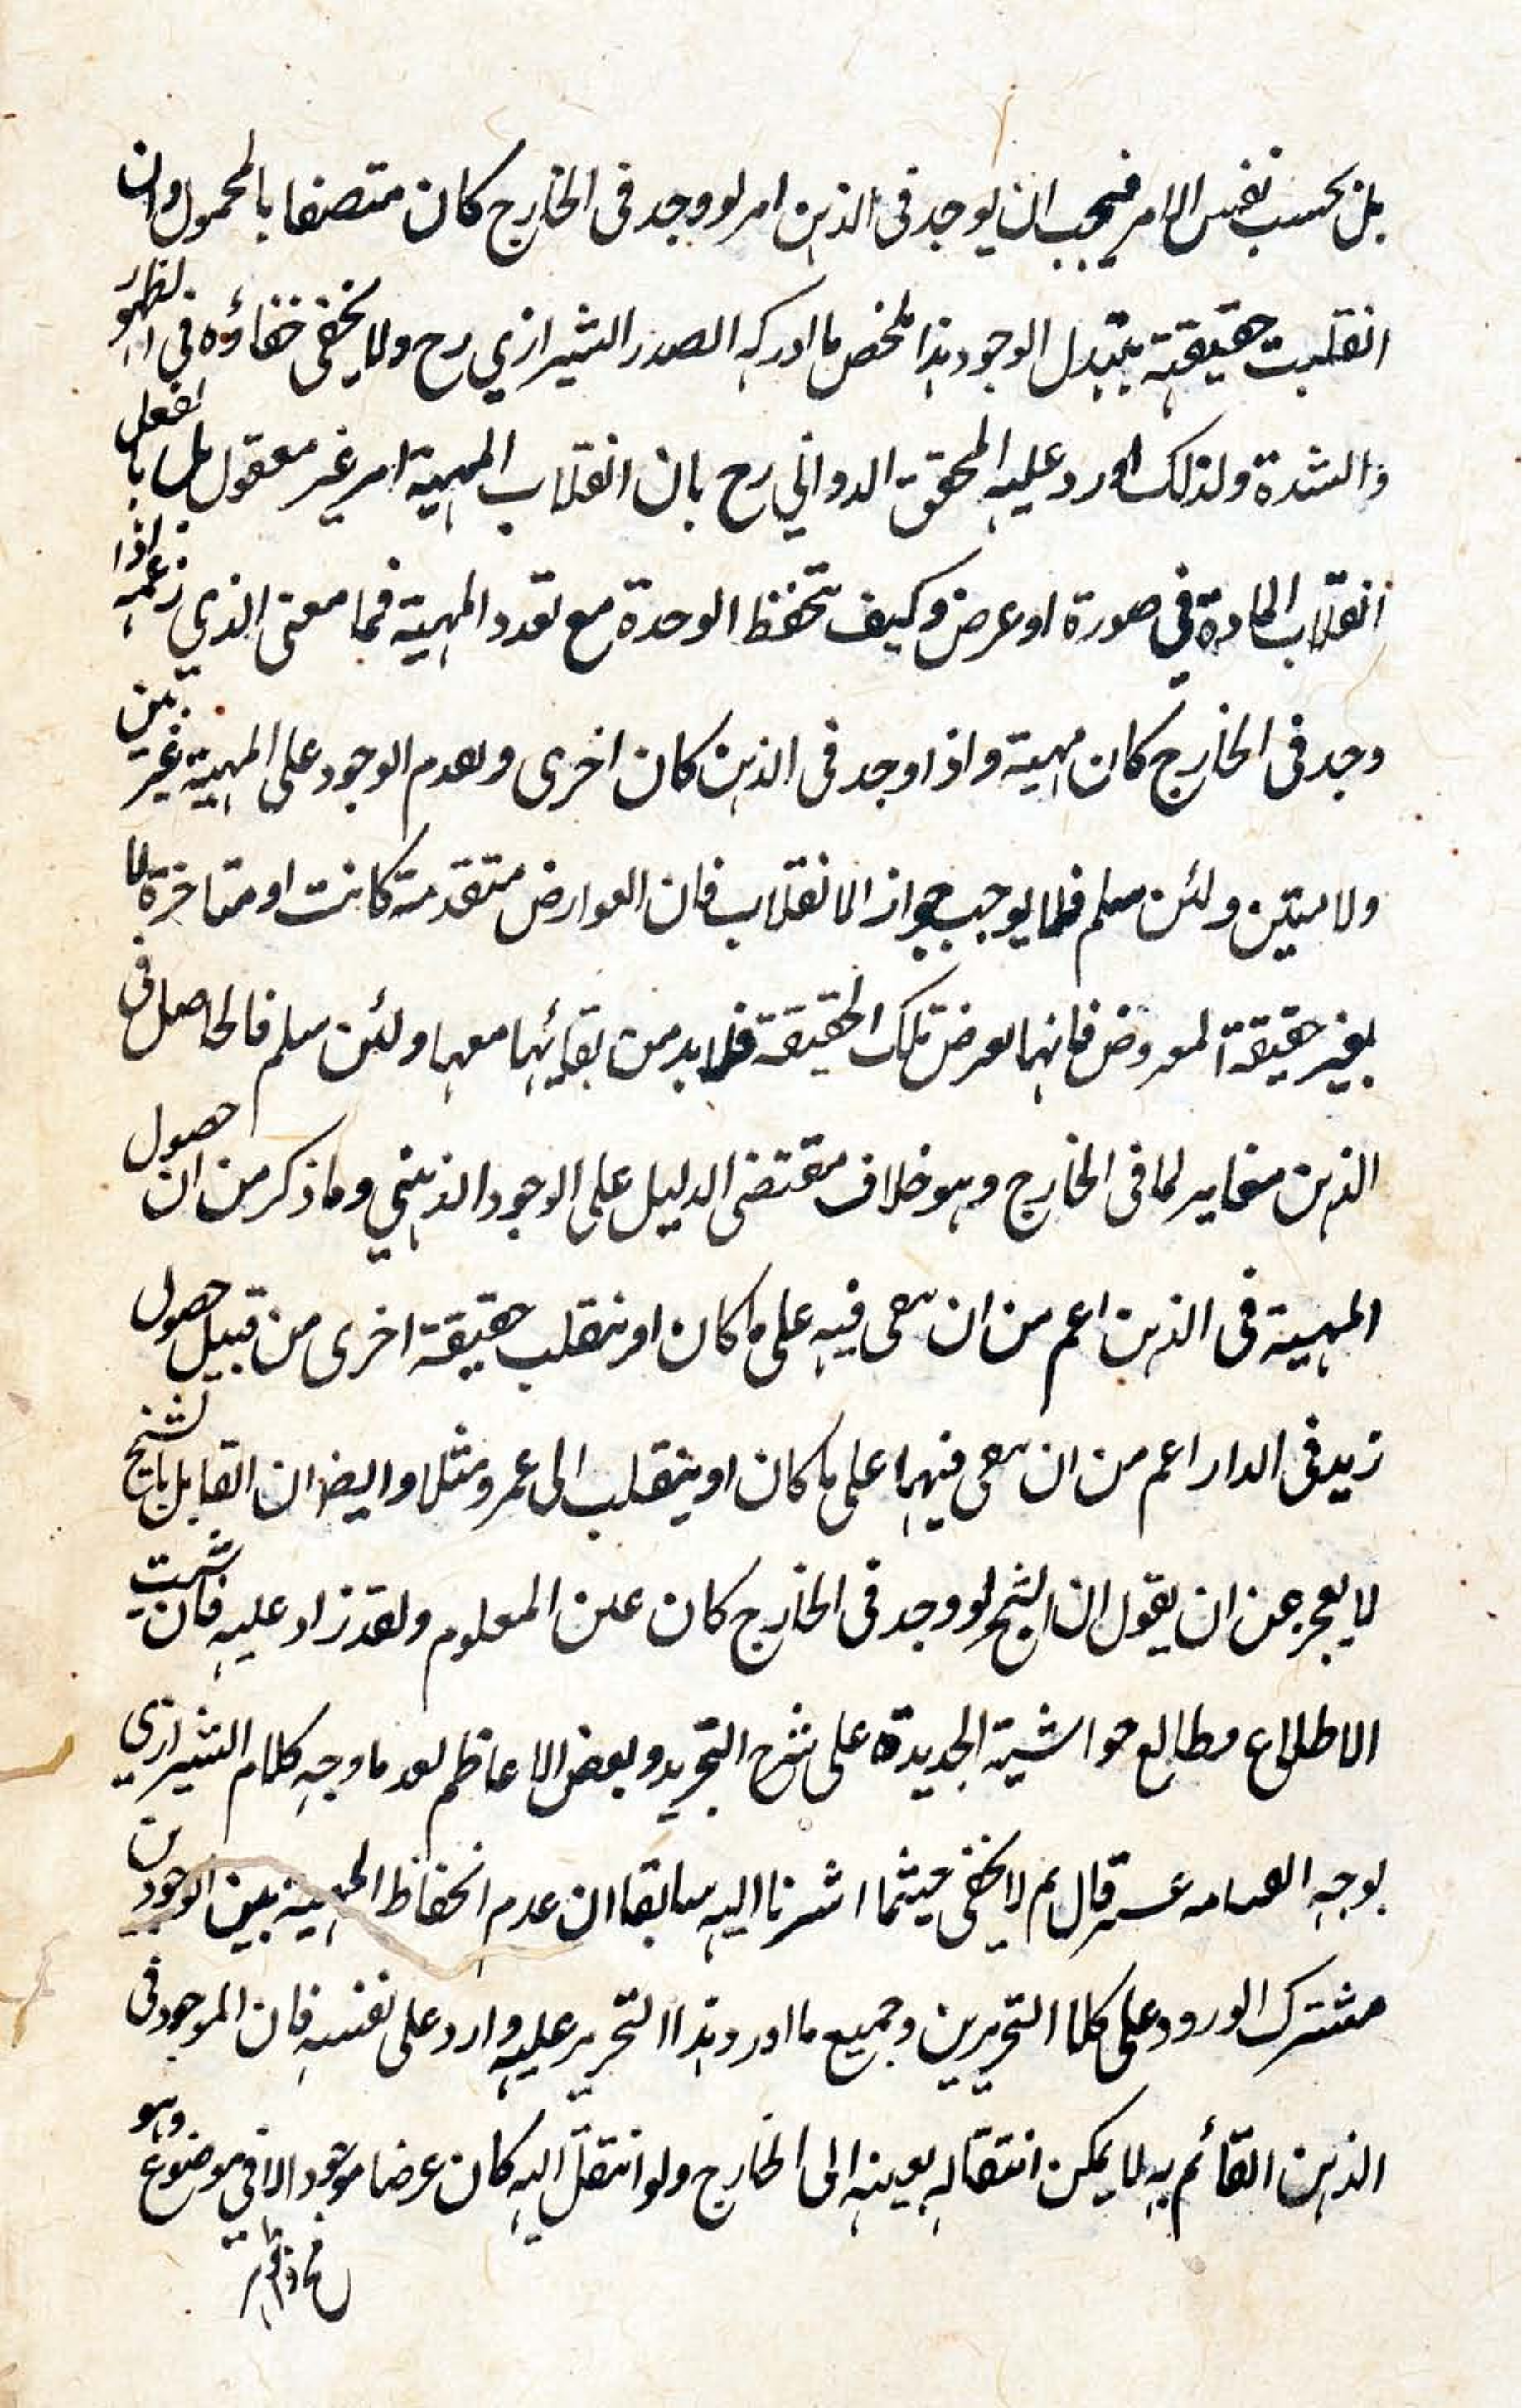 بل بحسب نفس الامر فيجب ان يوجد فى الذهن امر لو وجد فى الخارج كان متصفا بالمحمول وان
انقلبت حقيقته بتبدل الوجود هذا ملخص ما ادركه الصدر الشيرازي رح ولا يخفى خفاؤه فى الظهور
والشدة ولذلك اورد عليه المحقق الدواني رح بان انقلاب المهية امر غير معقول بل بالفعل
انقلاب المادة في صورة او عرض وكيف تحفظ الوحدة مع تعدد المهية فما معنى الذي زعمه اذا
وجد فى الخارج كان مهية واذا وجد فى الذهن كان اخرى وتقدم الوجود على المهية غير بين
ولا مبين ولئن سلم فلا يوجب جواز الانقلاب فان العوارض متقدمة كانت او متاخرة لا
يغير حقيقة المعروض فانها تعرض تلك الحقيقة فلا بد من بقائها معها ولئن سلم فالحاصل فى
الذهن مغاير لما فى الخارج وهو خلاف مقتضى الدليل على الوجود الذهني وما ذكر من ان حصول
المهية فى الذهن اعم من ان يبقى فيه على ما كان او ينقلب حقيقة اخرى من قبيل حصول
زيد فى الدار اعم من ان يبقى فيها على ما كان او ينقلب الى عمرو مثلا وايضا ان القابل بالشبح
لا يعجز عن ان يقول ان الشبح لو وجد فى الخارج كان عين المعلوم ولقد زاد عليه فان شئت
الاطلاع فطالع حواشية الجديدة على شرح التجريد وبعض الاعاظم بعد ما وجه كلام الشيرازي
بوجه قال ثم لا يخفى حيثما اشرنا اليه سابقا ان عدم انحفاظ المهية بين الوجودين
مشترك الورود على كلا التحريرين وجميع ما اورد هذا التحرير عليه وارد على نفسه فان الموجود فى
الذهن القائم به لا يمكن انتقاله بعينه الى الخارج ولو انتقل اليه كان عرضا موجودا فى موضوع وهو